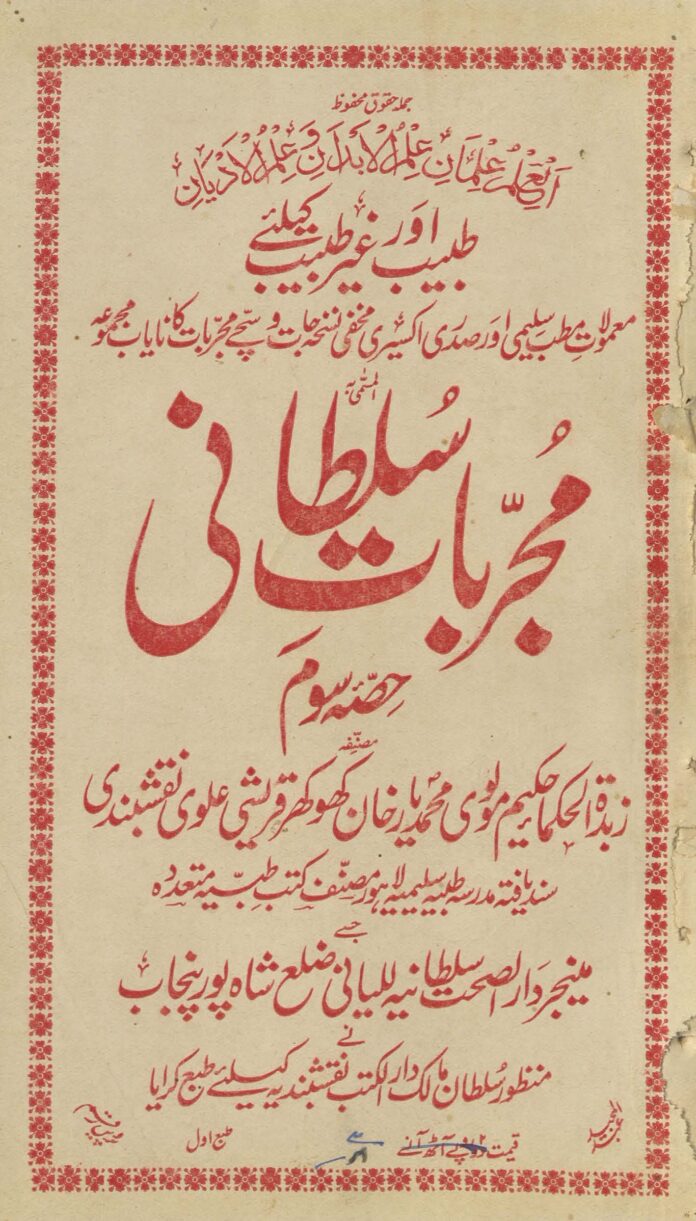 جملہ حقوق محفوظ
اَلعِلمُ عِلمَانِ عِلمُ الاَبدَانِ وَعِلمُ الاَدیَانِ
طبیب اور غیر طبیب کیلئے
معمولات مطب سلیمی اور صدری اکسیری مخفی نسخہ جات و سچے مجربات کا نایاب مجموعہ
المسمّٰی بہ
مُجرّبات سُلطانی
حصّہ سوم
مصنّفہ
زبدۃ الحکما حکیم مولوی محمد یار خان کھوکھر قریشی علوی نقشبندی
سند یافتہ مدرسہ طبیہ سلیمیہ لاہور مصنّف کتب طبّیہ متعددہ
جسے
مینجر دار الصحت سلطانیہ للیانی ضلع شاہ پور پنجاب
نے
منظور سُلطان مالک دار الکتب نقشبندیہ کیلئے طبع کرایا
طبع اول
قیمت دو روپے آٹھ آنے